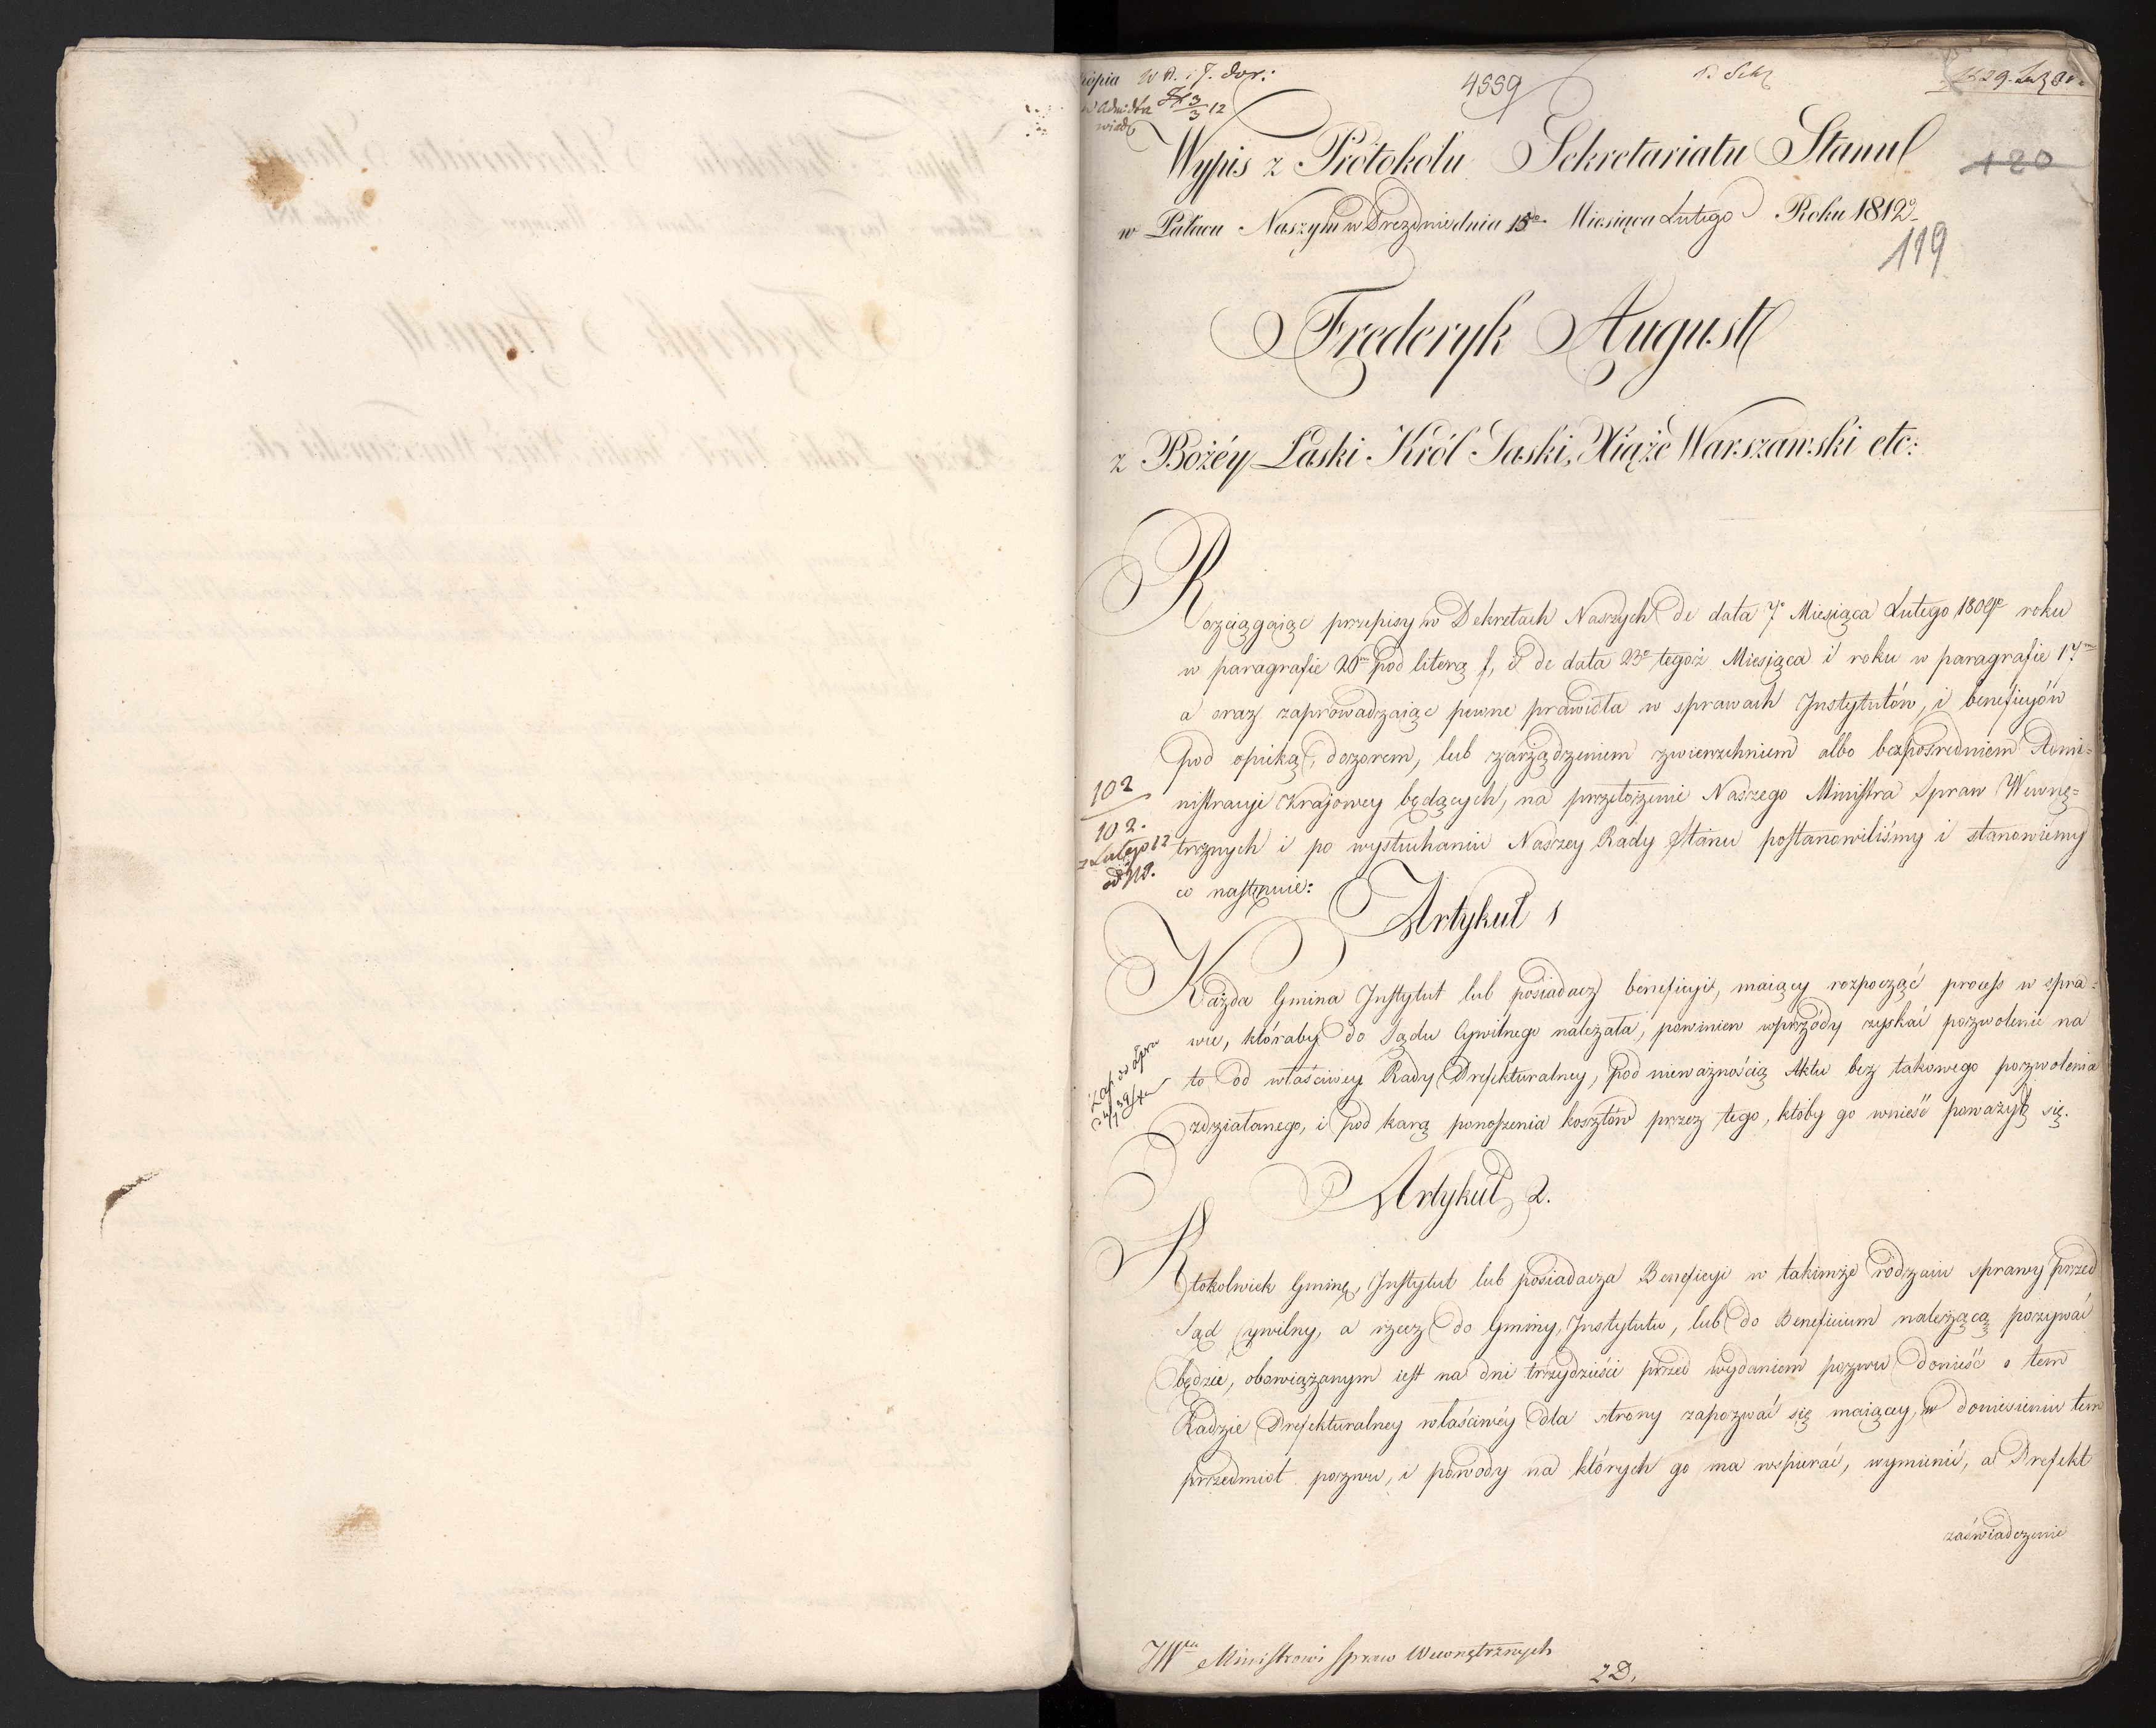 4559
120
Wypis z Protokołu Sekretariatu Stanu
w Pałacu Naszym w Dreznie dnia 15go Miesiąca Lutego Roku 1812o
119
Frederyk August
z Bożéy Łaski Król Saski, Xiąże Warszawski etc:
Rozciągaiąc przepisy w Dekretach Naszych de data 7o Miesiąca Lutego 1809o roku
w paragrafie 20m pod literą f, i de data 23o tegoż Miesiąca i roku w paragrafie 17m
a oraz zaprowadzaiąc pewne prawidła w sprawach Instytutów, i beneficyów
pod opieką, dozorem, lub zarządzeniem zwierzchniem albo bezpośredniem Admi=
nistracyi krajowey będących, na przełożenie Naszego Ministra Spraw Wewnę=
trznych i po wysłuchaniu Naszey Rady Stanu postanowiliśmy i stanowiemy
co następuie:
102
102.
z Lutego 12
Artykuł 1
Każda Gmina Instytut lub posiadacz beneficyi, maiący rozpocząć process w spra=
wie, któraby do Sądu Cywilnego należała, powinien wprzódy zyskać pozwolenie na
to od właściwey Rady Prefekturalney, pod nieważnością Aktu bez takowego pozwolenia
zdziałanego, i pod karą ponoszenia kosztów przez tego, któby go wnieść poważył się.
Artykuł 2.
Ktokolwiek Gminę, Instytut lub posiadacza Beneficyi w takimże rodzaiu sprawy przed
Sąd Cywilny, a rzecz do Gminy, Instytutu, lub do Beneficium należącą pozywać
będzie, obowiązanym iest na dni trzydzieści przed wydaniem pozwu donieść o tem
Radzie Prefekturalney właściwéy dla strony zapozwać się maiącey, w doniesieniu tem
przedmiot pozwu, i powody na których go ma wspierać, wymienić, a Prefekt
zaświadczenie
JWmu Ministrowi Spraw Wewnętrznych
2D.